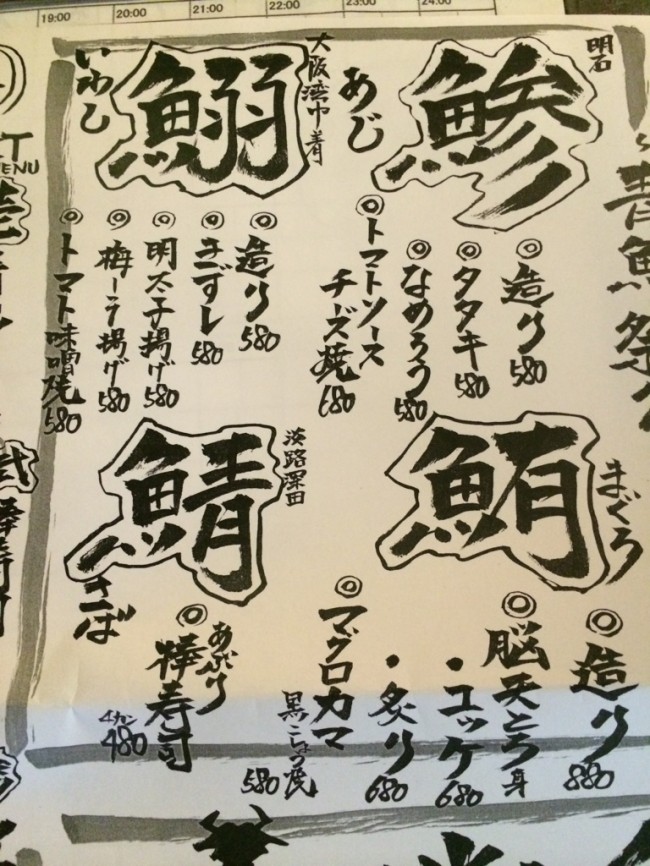 19:00 20:00 21:00 22:00 23:00 24:00
青魚祭り
明石
鯵
あじ
造り 580
タタキ 580
なめろう 580
トマトソース
チーズ焼 680
大阪湾巾着
鰯
いわし
造り 580
きずし 580
明太子揚げ 580
梅しそ揚げ 580
トマト味噌焼 580
鮪
まぐろ
造り 880
脳天とろ身
・ユッケ 680
・炙り 680
マグロカマ
黒こしょう焼 580
淡路深田
鯖
さば
あぶり
棒寿司
4カン 480
MENU